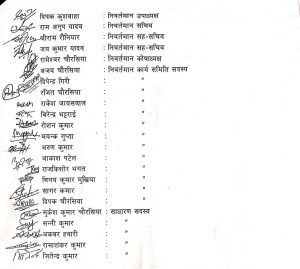 दिपक कुशवाहा : निवर्तमान उपाध्यक्ष
राम अनुप यादव : निवर्तमान सचिव
श्रीराम रौनियार : निवर्तमान सह-सचिव
जय कुमार यादव : निवर्तमान सह-सचिव
रामेश्वर चौरसिया : निवर्तमान कोषाध्यक्ष
बजय चौरसिया : निवर्तमान कार्य समिति सदस्य
दिपेन्द्र गिरी : "
रंजित चौरसिया : "
राकेश जायसवाल : "
बिरेन्द्र भट्टराई : "
रोशन कुमार : "
मयन्क गुप्ता : "
अरुण कुमार : "
आकाश पटेल : "
राजकिशोर भगत : "
विनय कुमार मुखिया : "
सागर कुमार : "
दिपक चौरसिया : "
मुकेश कुमार चौरसिया : साधारण सदस्य
सन्नी कुमार : "
अकबर हवारी : "
रामाशंकर कुमार : "
जितेन्द्र कुमार : "